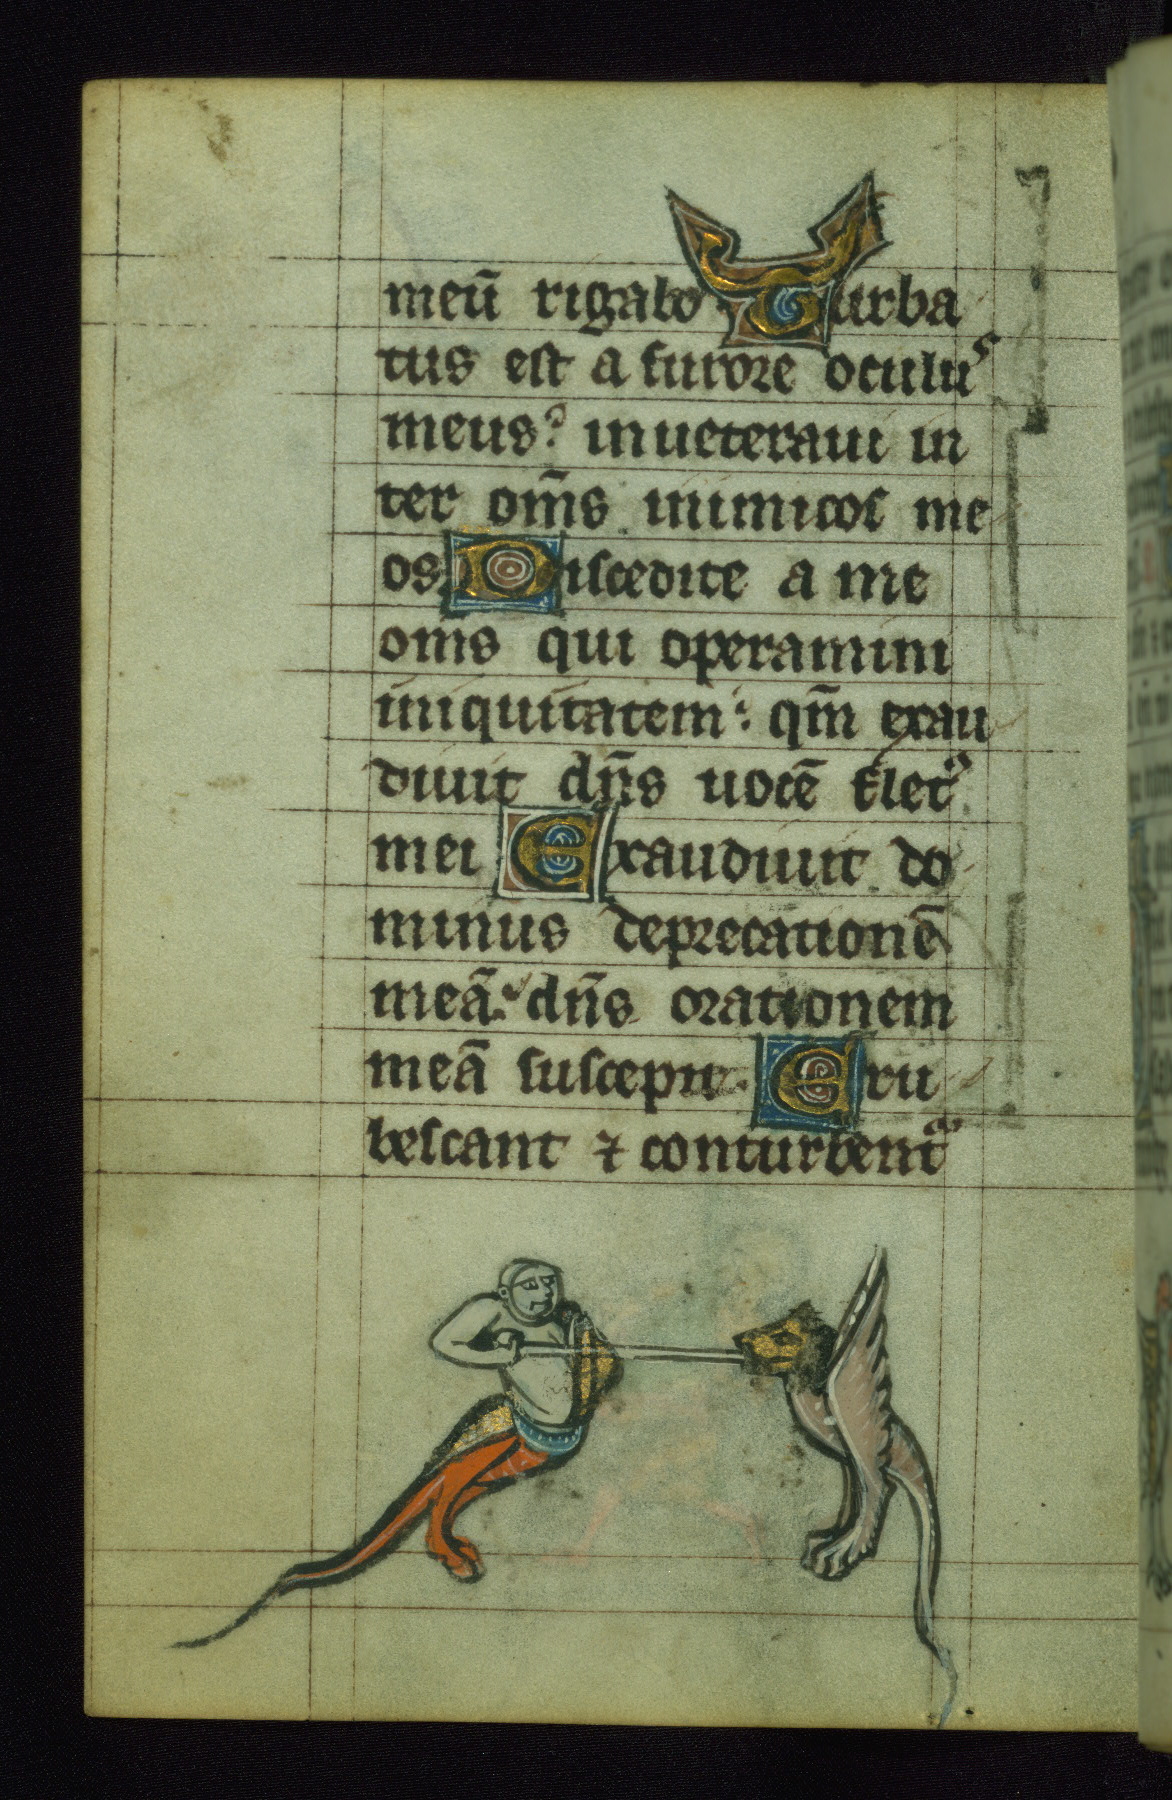 meū rigabo Turba
tus est a furore oculus
meus: inueteraui in
ter om̄s inimicos me
os Discedite a me
oms qui operamini
iniquitatem: qm̄ exau
diuit dn̄s uocē flet᷒
mei Exaudiuit do
minus deprecationē
meā: dn̄s orationem
meā suscepit. Eru
bescant ⁊ conturbent᷒